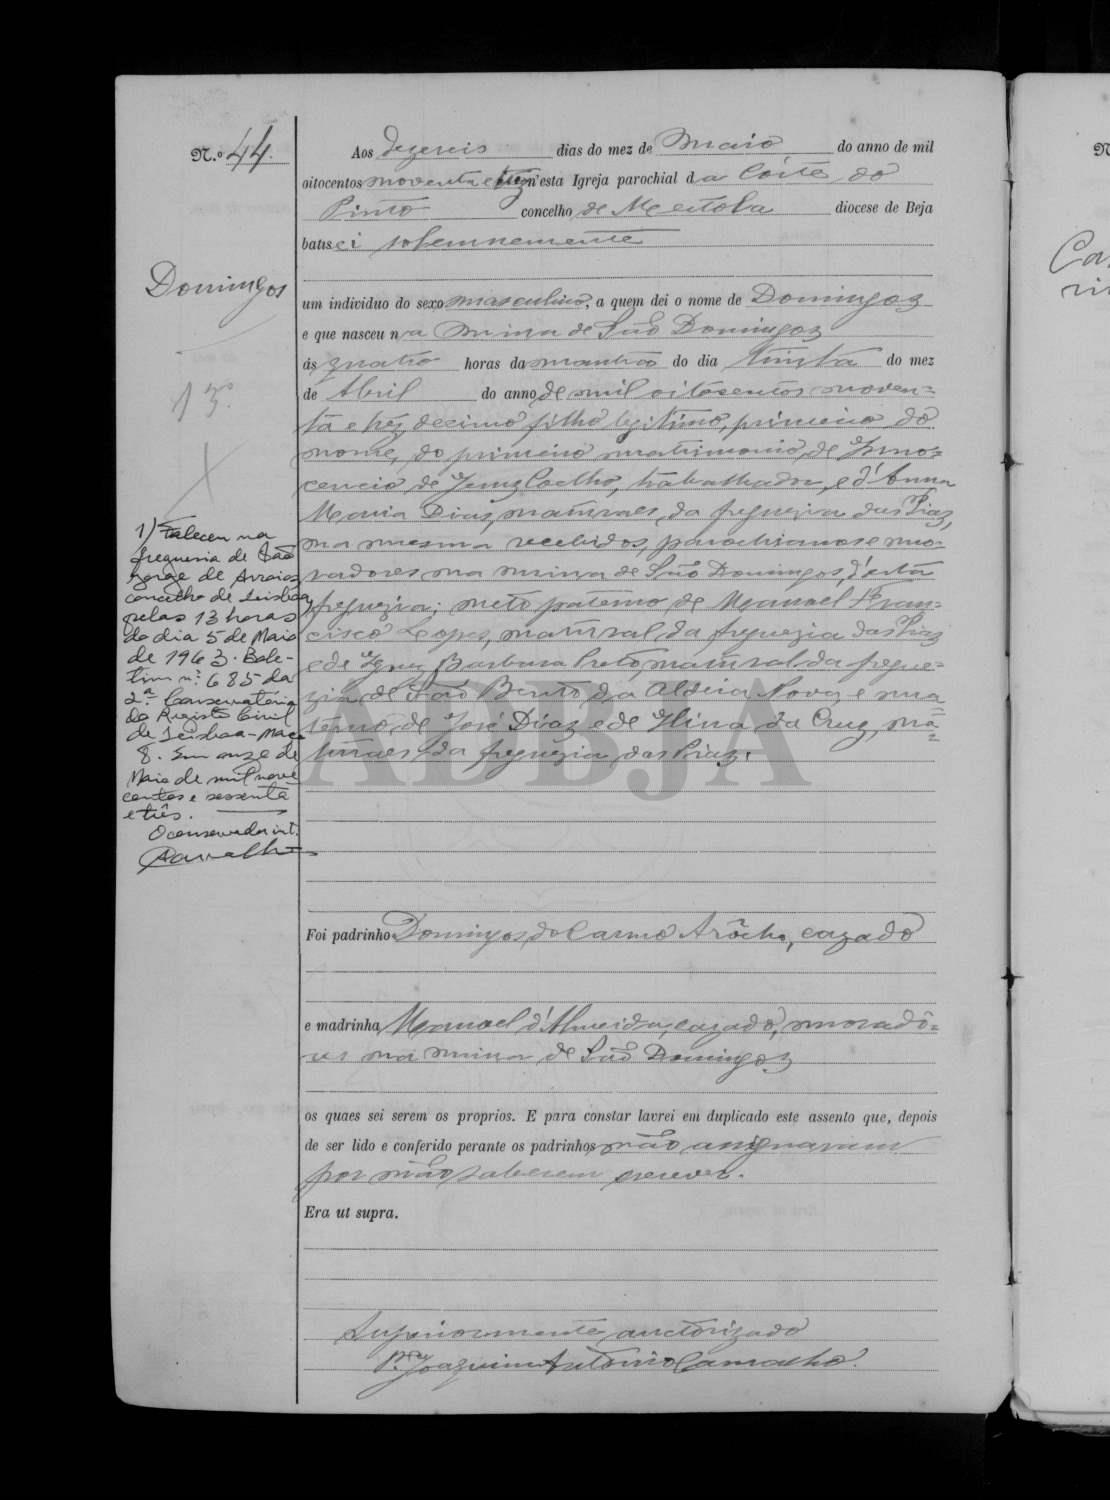 N.º 44.
Domingos
13.º
1) Faleceu na
freguesia de São
Jorge de Arroios
concelho de Lisboa,
pelas 13 horas
do dia 5 de Maio
de 1963. Bole-
tim n.º 685 da
2.ª Conservatória
do Registo Civil
de Lisboa - Maço
8. Em onze de
Maio de mil nove
centos e sessenta
e três.
O conservador int.
Carvalho
Aos dezeseis dias do mez de Maio do anno de mil
oitocentos noventa e trez n'esta Igreja parochial da Côrte do
Pinto concelho de Mertola diocese de Beja
batisei solemnemente
um individuo do sexo masculino, a quem dei o nome de Domingos
e que nasceu na Mina de São Domingos
ás quatro horas da manhão do dia trinta do mez
de Abril do anno de mil oitocentos noven=
ta e trez, decimo filho legitimo, primeiro do
nome, do primeiro matrimonio, de Inno=
cencio de Jesus Coelho, trabalhador, e d'Anna
Maria Dias, naturaes, da freguezia das Pias,
na mesma recebidos, parochianos e mo=
radores na mina de São Domingos, d'esta
freguezia; neto paterno de Manoel Fran=
cisco Lopes, natural da freguezia das Pias
e de Ignez Barbara Preto, natural da fregue=
zia de São Bento da Aldeia Nova e ma=
terno, de José Dias e de Ilina da Cruz, na=
turaes da freguezia das Pias.
ADBJA
Foi padrinho Domingos do Carmo Arôcha, cazado
e madrinha Manoel d'Almeida, cazado, moradô=
res na mina de São Domingos
os quaes sei serem os proprios. E para constar lavrei em duplicado este assento que, depois
de ser lido e conferido perante os padrinhos não assignaram
por não saberem escrever.
Era ut supra.
Superiormente auctorizado
P.e Joaquim Antonio Camacho.
N
Ca
ri